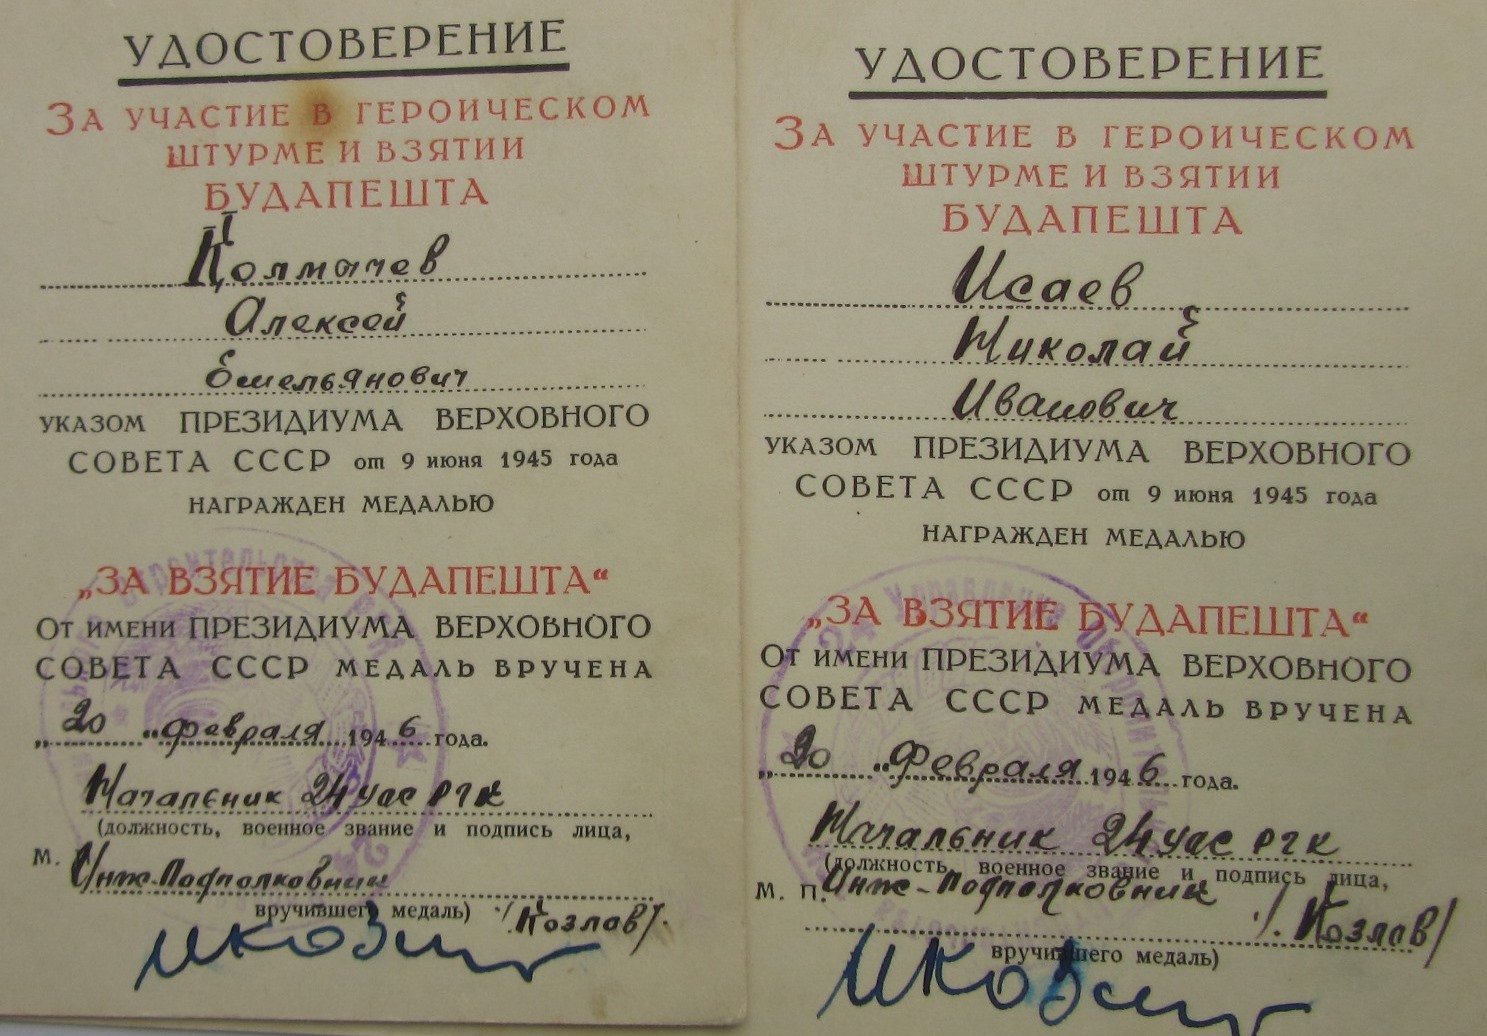 УДОСТОВЕРЕНИЕ
ЗА УЧАСТИЕ В ГЕРОИЧЕСКОМ
ШТУРМЕ И ВЗЯТИИ
БУДАПЕШТА
Колмачев
Алексей
Емельянович
УКАЗОМ ПРЕЗИДИУМА ВЕРХОВНОГО
СОВЕТА СССР от 9 июня 1945 года
НАГРАЖДЕН МЕДАЛЬЮ
„ЗА ВЗЯТИЕ БУДАПЕШТА“
ОТ ИМЕНИ ПРЕЗИДИУМА ВЕРХОВНОГО
СОВЕТА СССР МЕДАЛЬ ВРУЧЕНА
„20 “ февраля 1946 года.
Начальник 24 уос РГК
(должность, военное звание и подпись лица,
М.
Инж-Подполковник
вручившего медаль) /Козлов/.
УДОСТОВЕРЕНИЕ
ЗА УЧАСТИЕ В ГЕРОИЧЕСКОМ
ШТУРМЕ И ВЗЯТИИ
БУДАПЕШТА
Исаев
Николай
Иванович
УКАЗОМ ПРЕЗИДИУМА ВЕРХОВНОГО
СОВЕТА СССР от 9 июня 1945 года
НАГРАЖДЕН МЕДАЛЬЮ
„ЗА ВЗЯТИЕ БУДАПЕШТА“
ОТ ИМЕНИ ПРЕЗИДИУМА ВЕРХОВНОГО
СОВЕТА СССР МЕДАЛЬ ВРУЧЕНА
„20 “ Февраля 1946 года.
Начальник 24 уос РГК
(должность, военное звание и подпись лица,
М. П. Инж-Подполковник
/Козлов/
вручившего медаль)